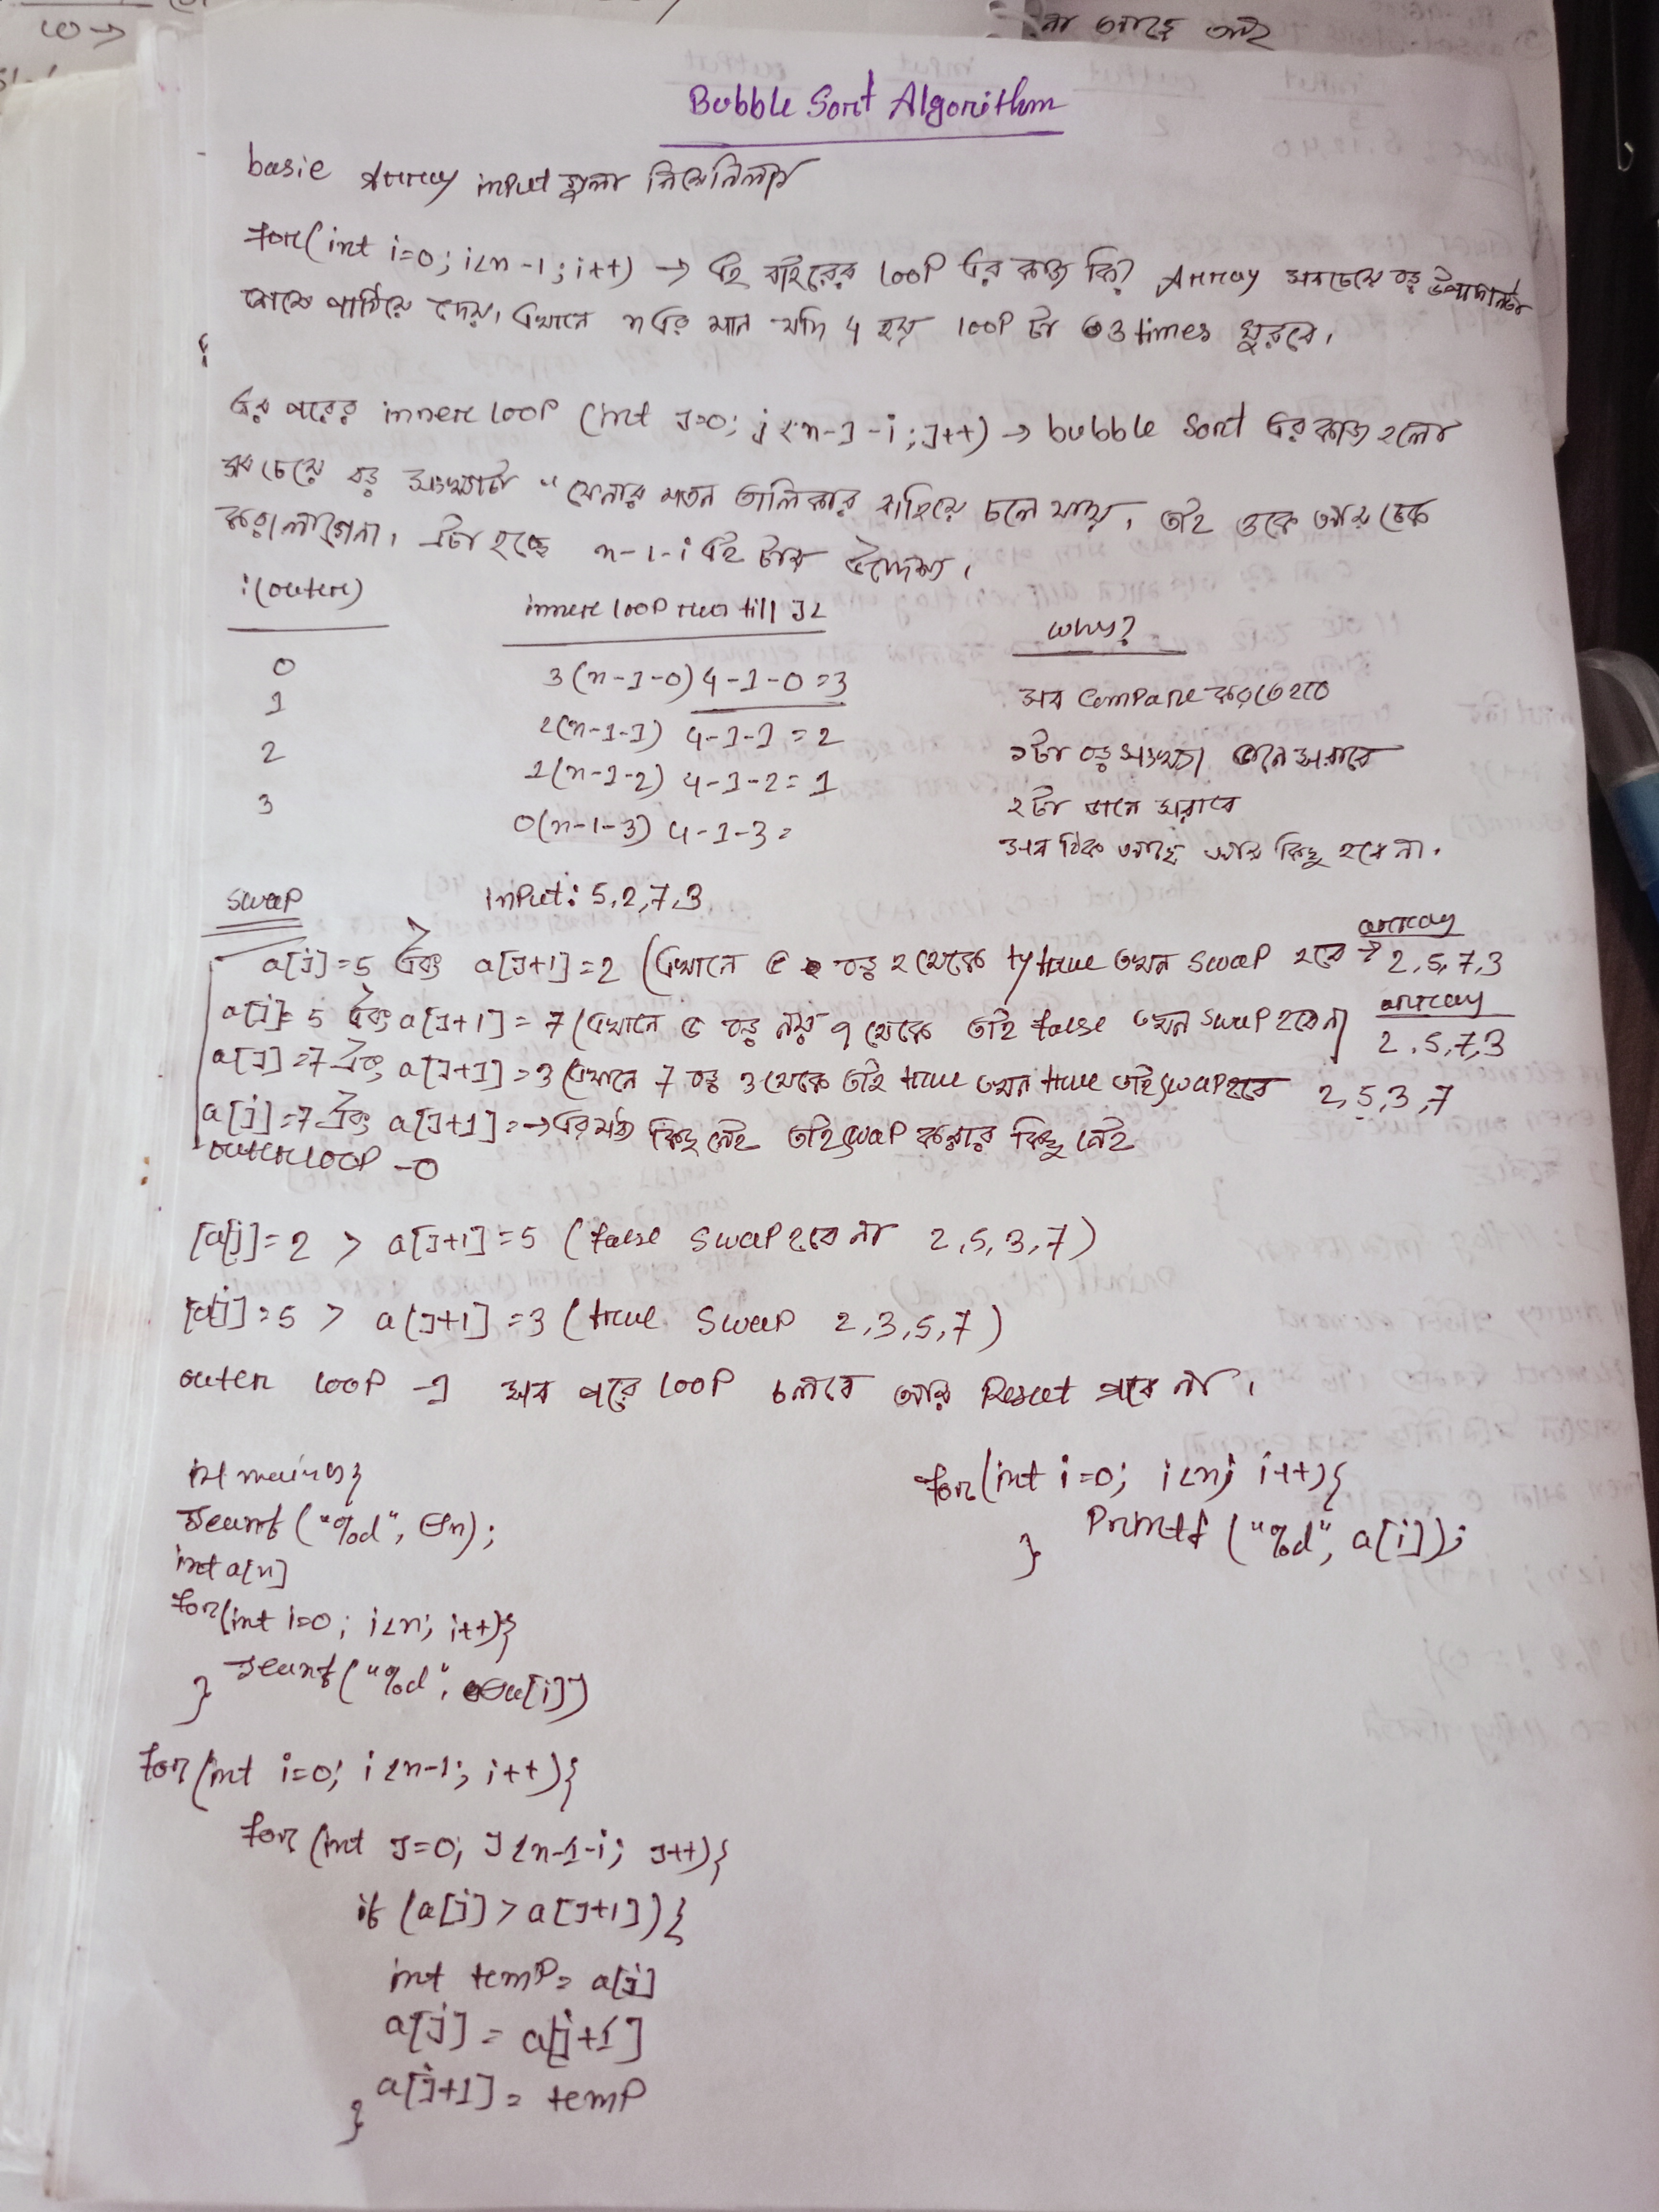 না আছে তাই
Bubble Sort Algorithm
basic Array input গুলা নিয়েনিলাম
for(int i=0; i<n-1; i++) → এই বাইরের loop এর কাজ কি? Array সবচেয়ে বড় উপাদানটা
শেষে পাঠিয়ে দেয়। এখানে n এর মান যদি 4 হয় loop টা 3 times ঘুরবে।
এর পরের inner loop (int j=0; j<n-1-i; j++) → bubble sort এর কাজ হলো
সবচেয়ে বড় সংখ্যাটা "ফেনার মতন তালিকার বাহিরে চলে যায়। তাই ওকে আর চেক
করা লাগেনা। এটা হচ্ছে n-1-i এই টার উদ্দেশ্য।
i(outer) inner loop run till j< why?
0 3(n-1-0) 4-1-0=3 সব compare করতে হবে
1 2(n-1-1) 4-1-1=2 ১টা বড় সংখ্যা ডানে সরাবে
2 1(n-1-2) 4-1-2=1 ২টা ডানে সরাবে
3 0(n-1-3) 4-1-3= সব ঠিক আছে আর কিছু হবে না।
swap input: 5,2,7,3
array
a[j]=5 এবং > a[j+1]=2 (এখানে ৫ বড় ২ থেকে true তখন swap হবে → 2,5,7,3
array
a[j]=5 এবং > a[j+1]=7 (এখানে ৫ বড় নয় ৭ থেকে তাই false তখন swap হবেনা) 2,5,7,3
a[j]=7 এবং > a[j+1]=3 (এখানে 7 বড় ৩ থেকে তাই true তখন true তাই swap হবে 2,5,3,7
a[j]=7 এবং > a[j+1]=→ এর মধ্যে কিছু নেই তাই swap করার কিছু নেই
outer loop -0
[a[j]=2 > a[j+1]=5 (false swap হবে না 2,5,3,7)
[a[j]=5 > a[j+1]=3 (true swap 2,3,5,7)
outer loop -1 সব পরে loop চলবে আর
int main(){
scanf("%d", &n);
int a[n]
for(int i=0; i<n; i++){
scanf("%d", &a[i])
}
for(int i=0; i<n-1; i++){
for(int j=0; j<n-1-i; j++){
if (a[j] > a[j+1]){
int temp= a[j]
a[j] = a[j+1]
a[j+1] = temp
}
for(int i=0; i<n; i++){
printf("%d", a[i]);
}